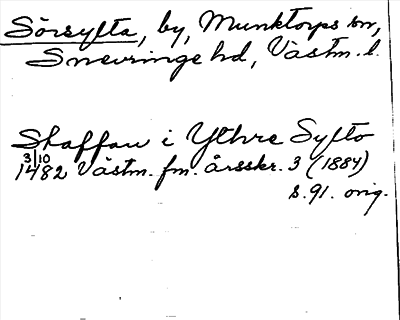 Sörsylta, by, Munktorps sn,
Snevringe hd, Västm. l.
Skaffau i Ythre Sylto
3/10
1482 Västm. fm. årsskr. 3 (1884)
s. 91. orig.